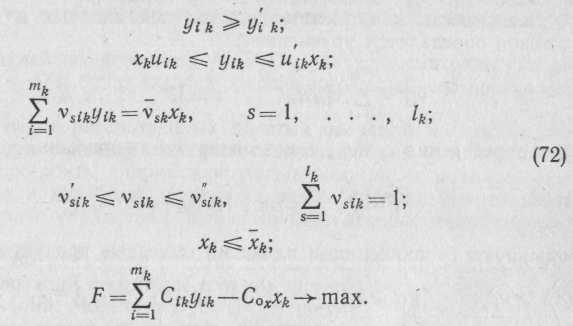 y_{i k} ⩾ y'_{i k};
x_k u_{ik} ⩽ y_{ik} ⩽ u'_{ik} x_k;
\sum_{i=1}^{m_k} ν_{sik} y_{ik} = \bar{ν}_{sk} x_k, s = 1, . . . , l_k;
(72)
ν'_{sik} ⩽ ν_{sik} ⩽ ν''_{sik}, \sum_{s=1}^{l_k} ν_{sik} = 1;
x_k ⩽ \bar{x}_k;
F = \sum_{i=1}^{m_k} C_{ik} y_{ik} — C_{o_x} x_k → max.